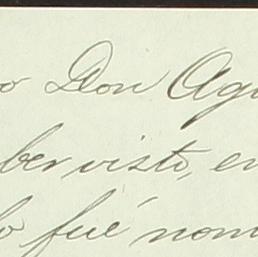 o Don Agu
ber visto, en
lo fué nom